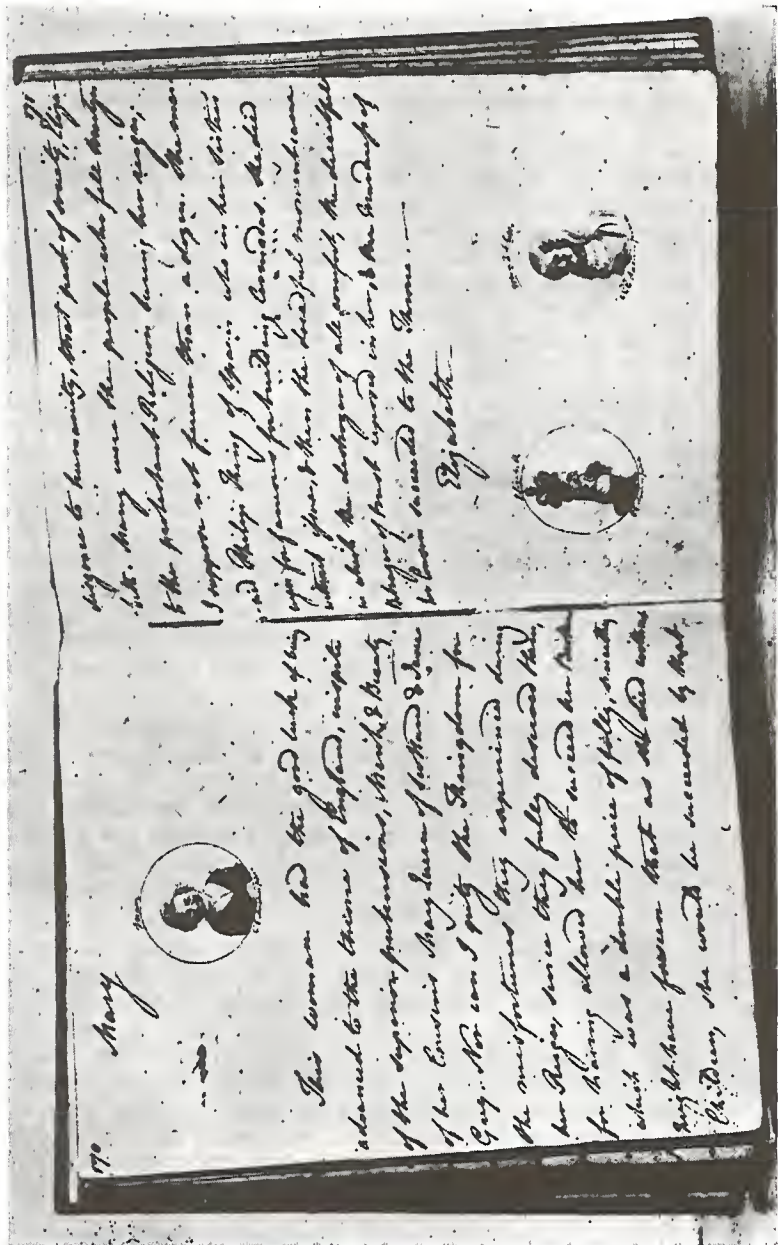 170
Mary
This woman had the good luck of being
advanced to the throne of England, inspite
of the superior pretensions, Merit, & Beauty
of her Cousins Mary Queen of Scotland & Jane
Grey. Nor can I pity the Kingdom for
the misfortunes they experienced during
her Reign, since they fully deserved them,
for having allowed her to succeed her Brother
which was a double peice of folly, since they
might have foreseen that as she died without
Children, she would be succeeded by that
171
disgrace to humanity, that pest of society, Eliza-
beth. Many were the people who fell Martyrs
to the protestant Religion during her reign;
I suppose not fewer than a dozen. She mar-
ried Philip King of Spain who in her Sister's
reign for famous for building Armadas. She died
without issue, & then the dreadful moment came
in which the destroyer of all comfort, the deceitful
Betrayer of trust reposed in her, & the Murderess of
her Cousin succeeded to the Throne. —
Elizabeth —